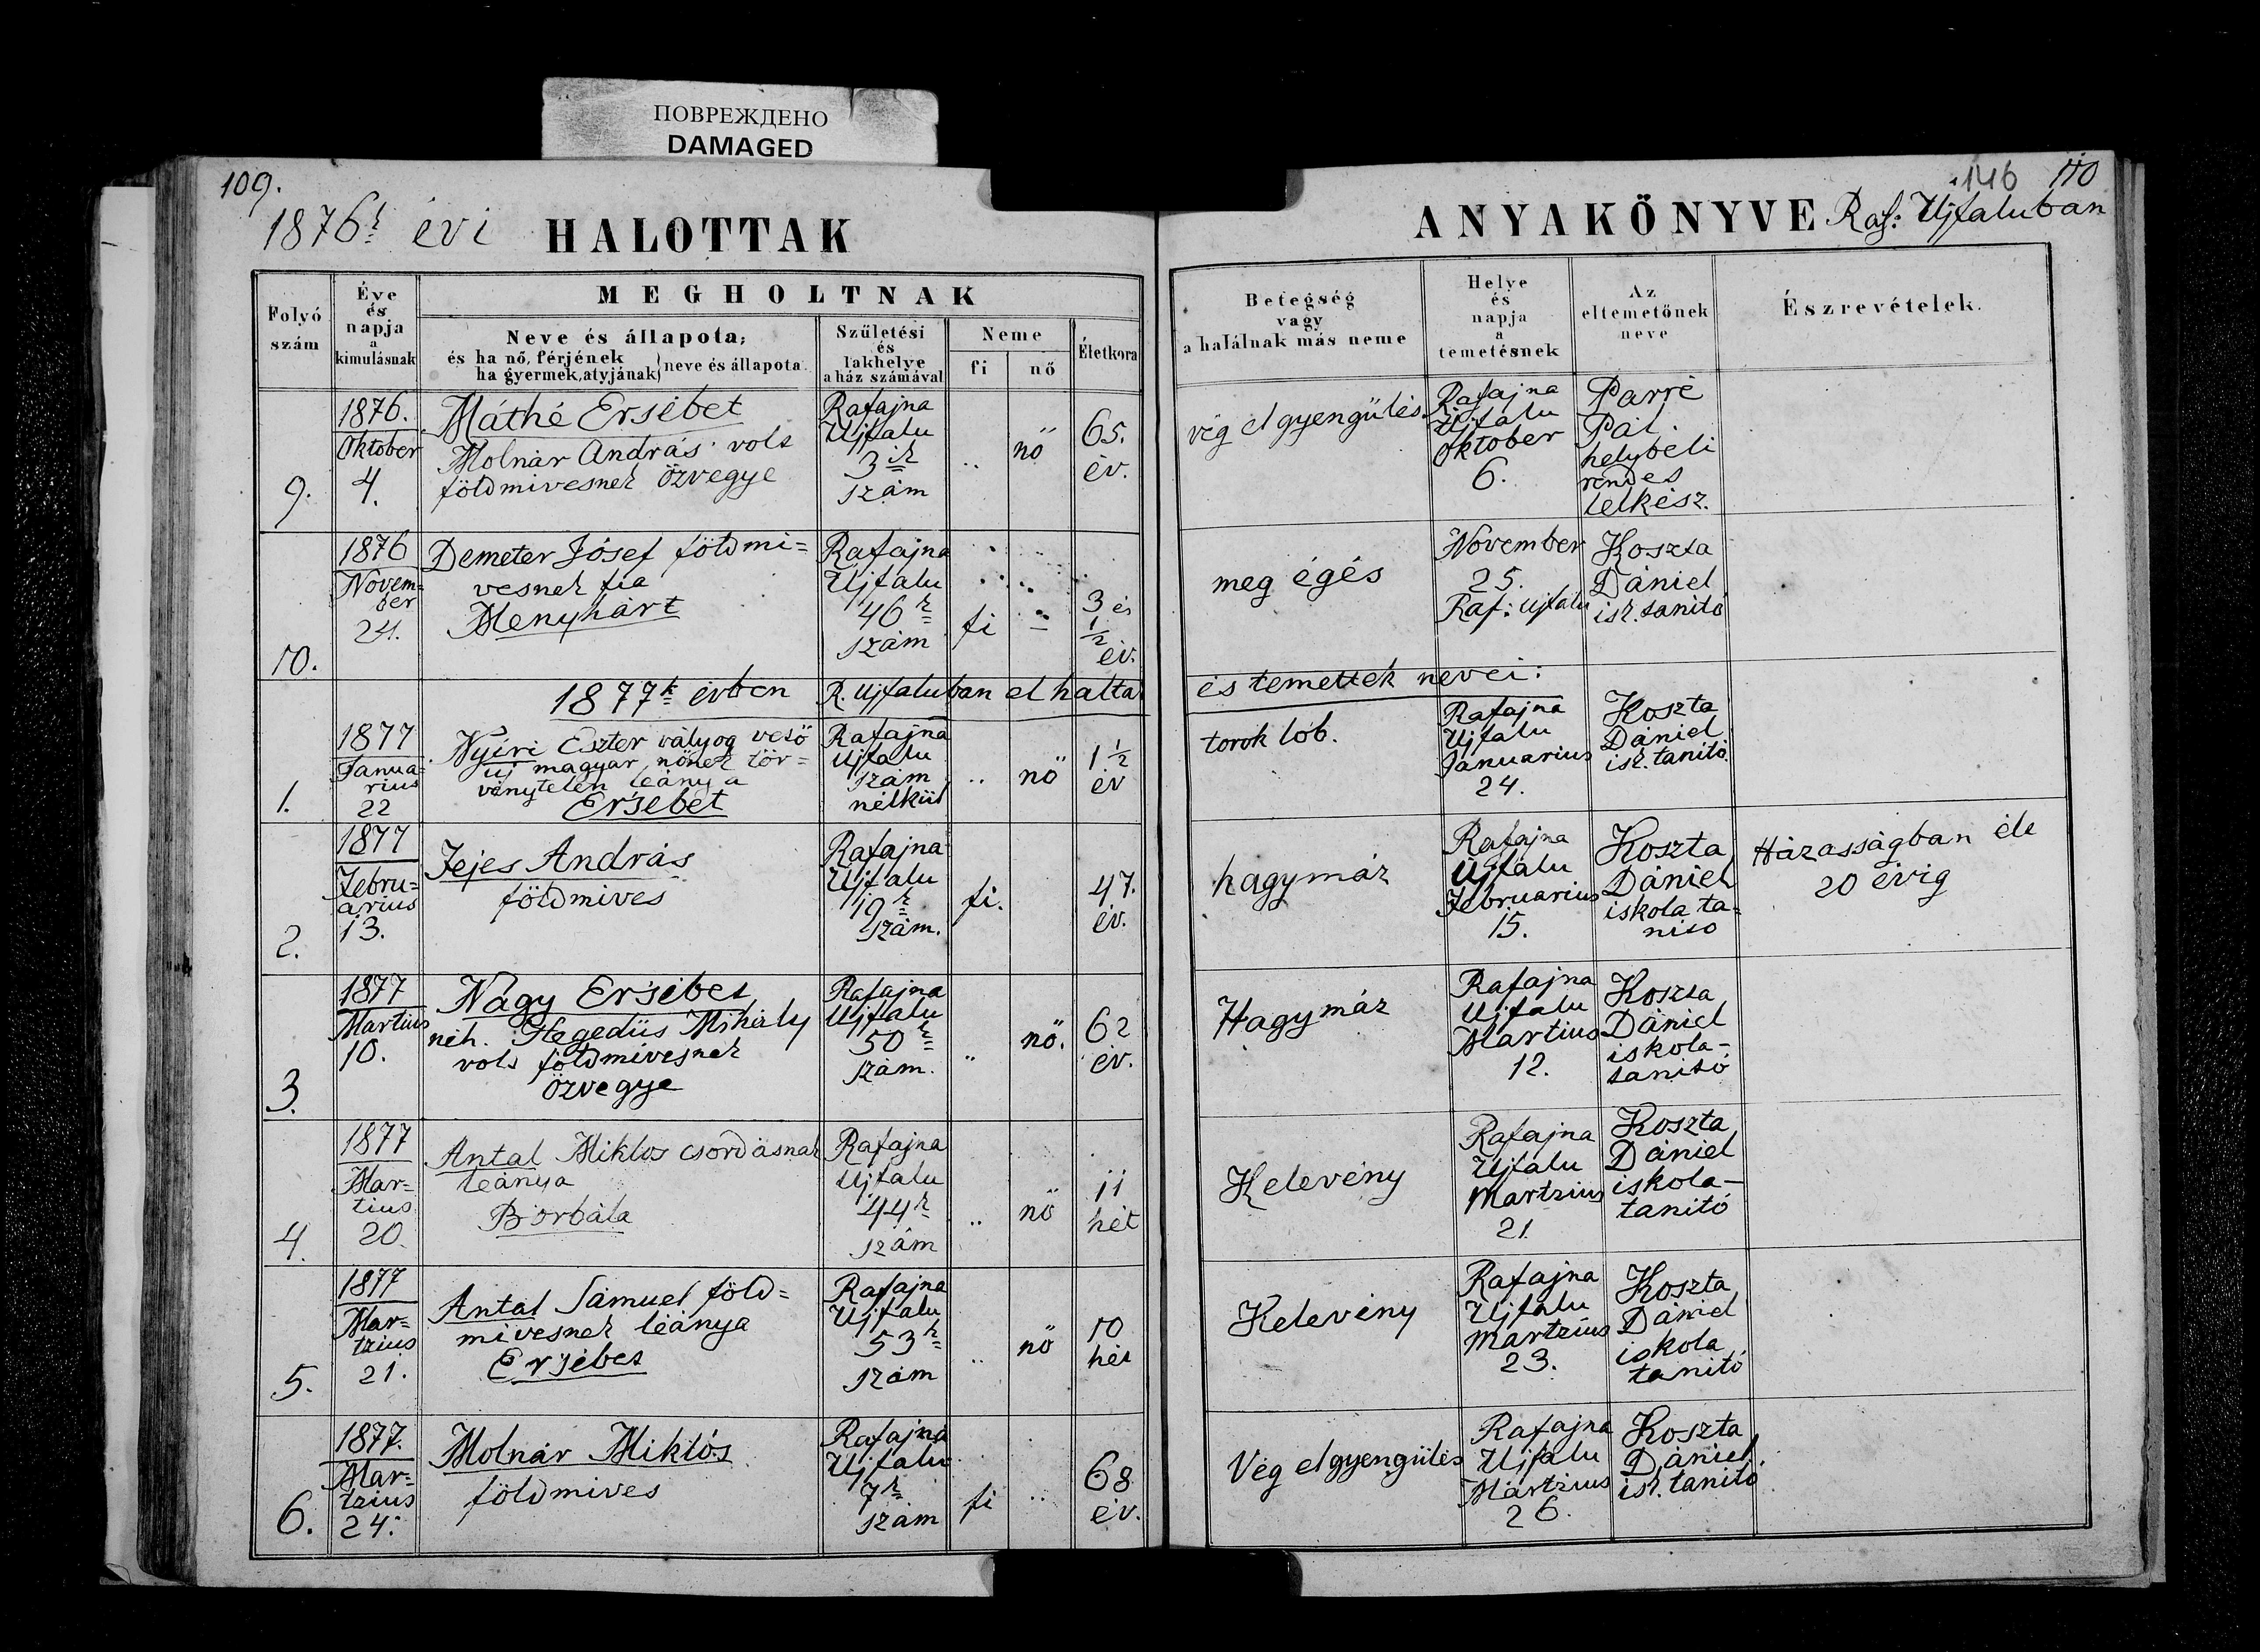 ПОВРЕЖДЕНО
DAMAGED
109.
146
110
1876k évi HALOTTAK
ANYAKÖNYVE Raf: Ujfaluban
Folyó
szám
Éve
és
napja
a
kimulásnak
MEGHOLTNAK
Neve és állapota;
és ha nő, férjének
ha gyermek, atyjának
neve és állapota
Születési
és
lakhelye
a ház számával
Neme
fi
nő
Életkora
Betegség
vagy
a halálnak más neme
Helye
és
napja
a
temetésnek
Az
eltemetőnek
neve
Észrevételek.
9.
1876.
Oktober
4.
Máthé Ersébet
Molnár András volt
földmivesnek özvegye
Rafajna
Ujfalu
3ik
szám
..
nő
65.
év.
vég elgyengülés.
Rafajna
Ujfalu
Oktober
6.
Parré
Pál
helybeli
rendes
lelkész.
10.
1876
Novem=
ber
24.
Demeter Jósef földmi=
vesnek fia
Menyhárt
Rafajna
Ujfalu
46k
szám
fi
3 és
1/2
év.
meg égés
November
25.
Raf: Ujfalu
Koszta
Dániel
isk. tanító
1877k évben R. Ujfaluban elhalta
és temettek nevei:
1.
1877
Janua=
rius
22
Nyiri Eszter vályog vető
uj magyar nőnek tör=
vénytelen leánya
Ersébet
Rafajna
Ujfalu
szám
nélkül
..
nő
1 1/2
év
torok lob.
Rafajna
Ujfalu
Januarius
24.
Koszta
Dániel
isk. tanitó.
2.
1877
Febru=
arius
13.
Fejes András
földmives
Rafajna
Ujfalu
19k
szám.
fi.
47.
év.
hagymáz
Rafajna
Ujfalu
Februarius
15.
Koszta
Dániel
iskola ta=
nito
Házasságban élt
20 évig
3.
1877
Martius
10.
Nagy Ersébet
néh. Hegedüs Mihály
volt földmivesnek
özvegye
Rafajna
Ujfalu
50k
szám.
..
nő.
62
év.
Hagymáz
Rafajna
Ujfalu
Martius
12.
Koszta
Dániel
iskola-
tanitó
4.
1877
Mar=
tius
20.
Antal Miklos csordásnak
leánya
Borbála
Rafajna
Ujfalu
44k
szám
..
nő
11
hét
Kelevény
Rafajna
Ujfalu
Martzius
21.
Koszta
Dániel
iskola-
tanitó
5.
1877
Mar=
tzius
21.
Antal Sámuel föld=
mivesnek leánya
Ersébet
Rafajna
Ujfalu
53k
szám
..
nő
10
hét
Kelevény
Rafajna
Ujfalu
Martzius
23.
Koszta
Dániel
iskola
tanitó
6.
1877.
Mar=
tzius
24.
Molnár Miklós
földmives
Rafajna
Ujfalu
7k
szám
fi
..
68
év.
Vég elgyengülés
Rafajna
Ujfalu
Martzius
26.
Koszta
Dániel
isk. tanitó